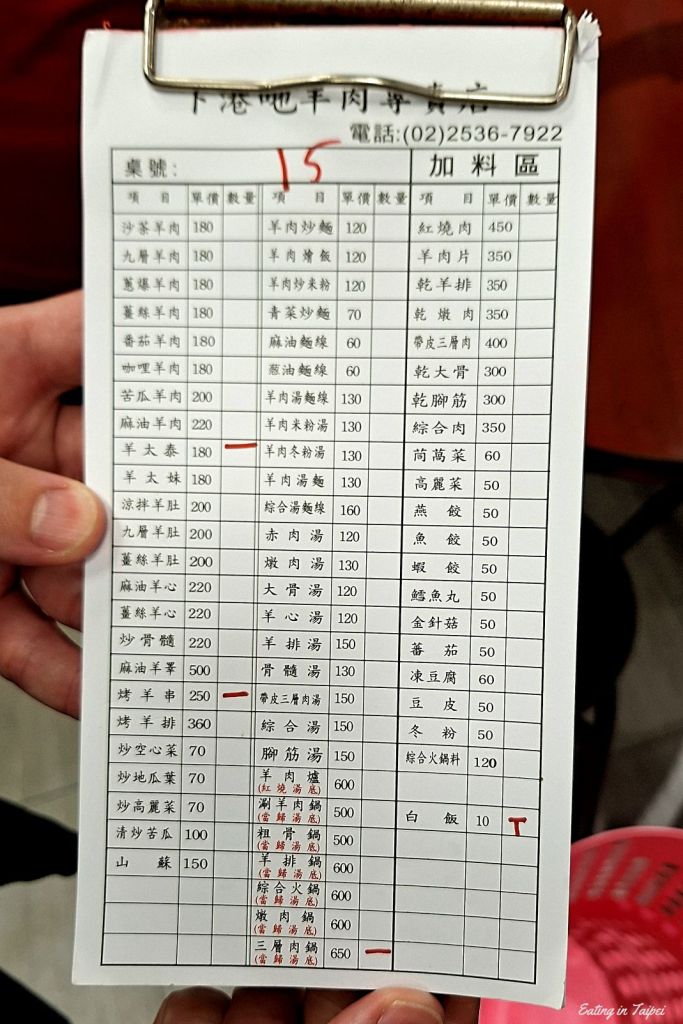 下港吔羊肉專賣店
電話:(02)2536-7922
桌號: 15 加料區
項目 單價 數量 項目 單價 數量 項目 單價 數量
沙茶羊肉 180 羊肉炒麵 120 紅燒肉 450
九層羊肉 180 羊肉燴飯 120 羊肉片 350
蔥爆羊肉 180 羊肉炒米粉 120 乾羊排 350
薑絲羊肉 180 青菜炒麵 70 乾燉肉 350
番茄羊肉 180 麻油麵線 60 帶皮三層肉 400
咖哩羊肉 180 葱油麵線 60 乾大骨 300
苦瓜羊肉 200 羊肉湯麵線 130 乾腳筋 300
麻油羊肉 220 羊肉米粉湯 130 綜合肉 350
羊太泰 180 一 羊肉冬粉湯 130 茼萵菜 60
羊太妹 180 羊肉湯麵 130 高麗菜 50
涼拌羊肚 200 綜合湯麵線 160 燕餃 50
九層羊肚 200 赤肉湯 120 魚餃 50
薑絲羊肚 200 燉肉湯 130 蝦餃 50
麻油羊心 220 大骨湯 120 鱈魚丸 50
薑絲羊心 220 羊心湯 120 金針菇 50
炒骨髓 220 羊排湯 150 蕃茄 50
麻油羊睪 500 骨髓湯 130 凍豆腐 60
烤羊串 250 一 帶皮三層肉湯 150 豆皮 50
烤羊排 360 綜合湯 150 冬粉 50
炒空心菜 70 腳筋湯 150 綜合火鍋料 120
炒地瓜葉 70 羊肉爐 600
(紅燒湯底)
炒高麗菜 70 涮羊肉鍋 500 白飯 10 T
(當歸湯底)
清炒苦瓜 100 粗骨鍋 500
(當歸湯底)
山蘇 150 羊排鍋 600
(當歸湯底)
綜合火鍋 600
(當歸湯底)
燉肉鍋 600
(當歸湯底)
三層肉鍋 650 一
(當歸湯底)
Eating in Taipei